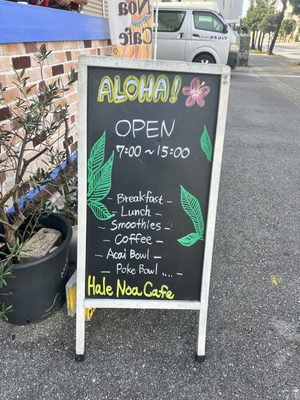 Noa
Cafe
ALOHA!
OPEN
7:00~15:00
- Breakfast -
- Lunch -
- Smoothies -
- Coffee -
- Acai Bowl -
- Poke Bowl ....
Hale Noa Cafe